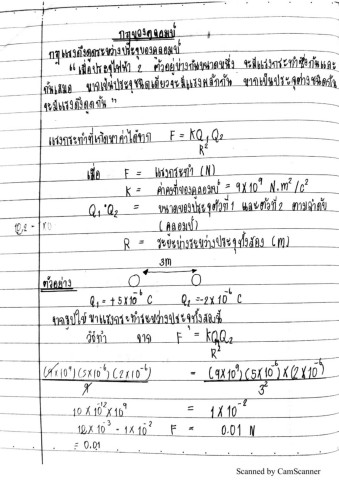 กฎของคูลอมบ์
กฎแรงดึงดูดระหว่างประจุของคูลอมบ์
"เมื่อประจุไฟฟ้า 2 ตัวอยู่ห่างกันขนาดหนึ่ง จะมีแรงกระทำซึ่งกันและ
กันเสมอ หากเป็นประจุชนิดเดียวจะมีแรงผลักกัน หากเป็นประจุต่างชนิดกัน
จะมีแรงดึงดูดกัน"
แรงกระทำที่เกิดหาค่าได้จาก F = KQ₁Q₂
R²
เมื่อ F = แรงกระทำ (N)
K = ค่าคงที่ของคูลอมบ์ = 9×10⁹ N.m²/c²
Q₁ Q₂ = ขนาดของประจุตัวที่ 1 และตัวที่ 2 ตามลำดับ
(คูลอมบ์)
R = ระยะห่างระหว่างประจุทั้งสอง (m)
3m
ตัวอย่าง
Q₁ = +5×10⁻⁶ C Q₂ = -2×10⁻⁶ C
จากรูปให้หาแรงกระทำระหว่างประจุทั้งสองนี้
วิธีทำ จาก F = KQ₁Q₂
R²
(9×10⁹)(5×10⁻⁶)(2×10⁻⁶) = (9×10⁹)(5×10⁻⁶)×(2×10⁻⁶)
9 3²
10×10⁻¹²×10⁹ = 1×10⁻²
10×10⁻³ - 1×10⁻² F = 0.01 N
= 0.01
Scanned by CamScanner